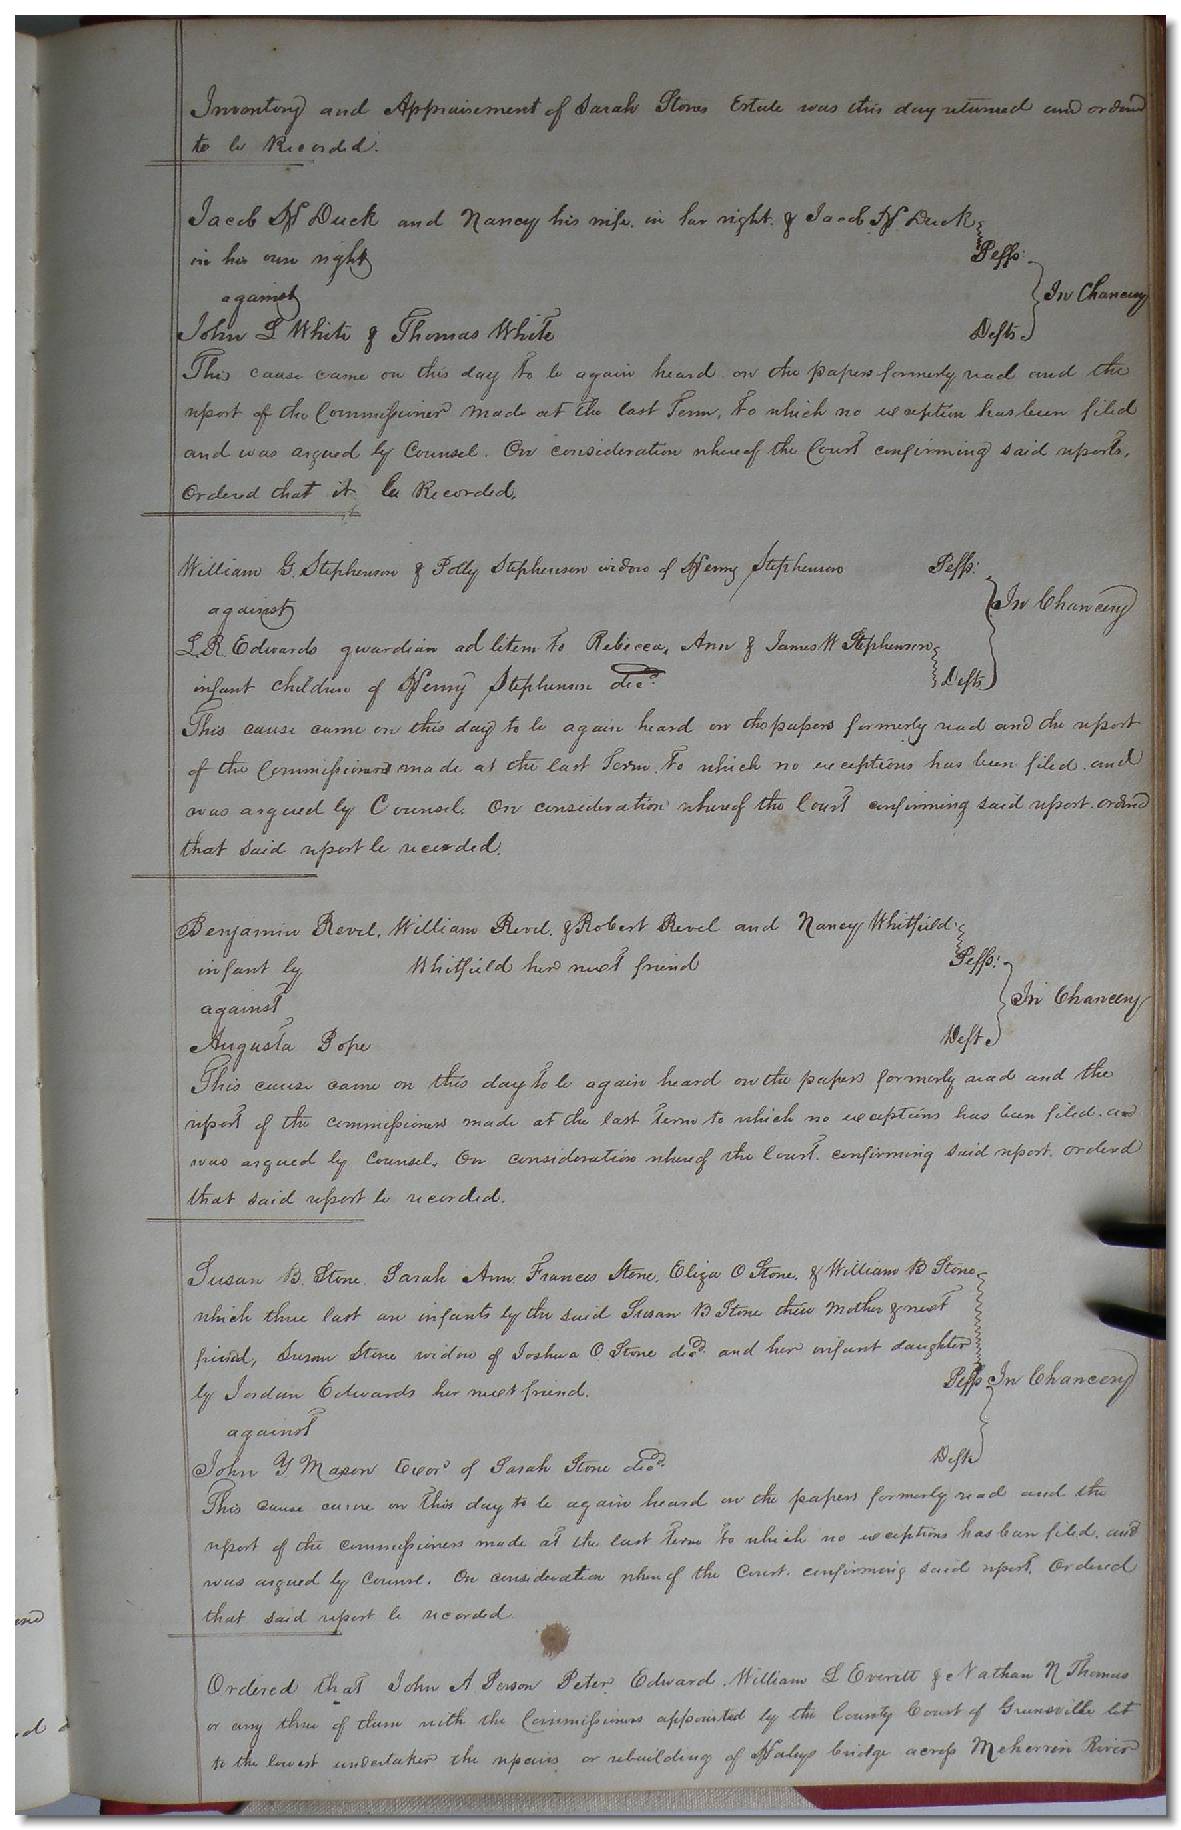 Inventory and Appraisement of Sarah Stones Estate was this day returned and ordered
to be Recorded.
Jacob H Duck and Nancy his wife, in her right & Jacob H Duck
in his own right Peffs:
against In Chancery
John L White & Thomas White Defts.
This cause came on this day to be again heard on the papers formerly read and the
report of the Commissioners made at the last Term, to which no exception has been filed
and was argued by Counsel. On consideration whereof the Court confirming said reports,
Ordered that it be Recorded.
William G. Stephenson & Polly Stephenson widow of Henry Stephenson Peffs:
against In Chancery
L.R. Edwards guardian ad litem to Rebecca, Ann & James W Stephenson
infant children of Henry Stephenson decd Defts
This cause came on this day to be again heard on the papers formerly read and the report
of the Commissioners made at the last Term, to which no exceptions has been filed. and
was argued by Counsel. On consideration whereof the Court confirming said report. ordered
that said report be recorded.
Benjamin Revel, William Revel, & Robert Revel and Nancy Whitfield
infant by Whitfield her next friend Peffs:
against In Chancery
Augusta Pope Deft
This cause came on this day to be again heard on the papers formerly read and the
report of the commissioners made at the last term to which no exceptions has been filed. and
was argued by Counsel. On consideration whereof the Court. confirming said report. ordered
that said report be recorded.
Susan B. Stone, Sarah Ann, Frances Stone, Eliza O Stone, & William B Stone
which three last are infants by the said Susan B Stone their Mother & next
friend, Susan Stone widow of Joshua O Stone decd. and her infant daughter
by Jordan Edwards her next friend. Peffs In Chancery
against
John Y Mason Exor of Sarah Stone decd. Deft
This cause came on this day to be again heard on the papers formerly read and the
report of the commissioners made at the last term to which no exceptions has been filed. and
was argued by Counsel. On consideration whereof the Court. confirming said report. Ordered
that said report be recorded
Ordered that John A Person Peter Edward. William L Everett & Nathan N Thomas
or any three of them with the Commissioners appointed by the County Court of Greensville let
to the lowest undertaker the repairs or rebuilding of Haleys bridge across Meherrin River